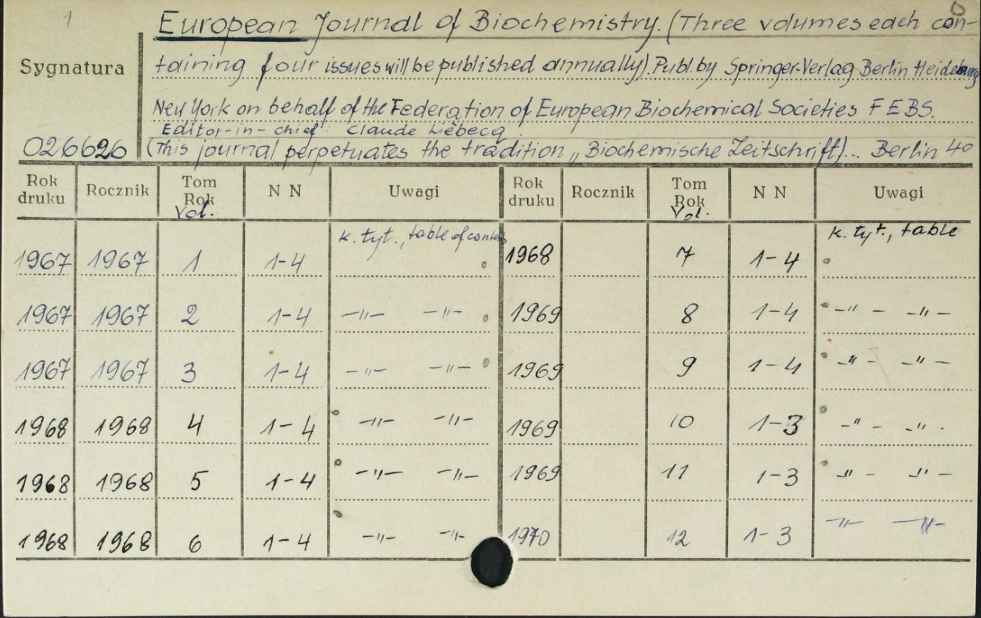 1
European Journal of Biochemistry. (Three volumes each con-
Sygnatura
taining four issues will be published annually). Publ. by Springer-Verlag Berlin Heidelberg
New York on behalf of the Federation of European Biochemical Societies FEBS.
Editor-in-chief Claude Liébecq.
026620 (This journal perpetuates the tradition „Biochemische Zeitschrift)... Berlin 40
Rok druku Rocznik Tom Rok Vol. N N Uwagi Rok druku Rocznik Tom Rok Vol. N N Uwagi
1967 1967 1 1-4 k. tyt., table of conten 1968 7 1-4 k. tyt., table
1967 1967 2 1-4 -"- -"- 1969 8 1-4 -"- -"-
1967 1967 3 1-4 -"- -"- 1969 9 1-4 -"- -"-
1968 1968 4 1-4 -"- -"- 1969 10 1-3 -"- -"-
1968 1968 5 1-4 -"- -"- 1969 11 1-3 -"- -"-
1968 1968 6 1-4 -"- -"- 1970 12 1-3 -"- -"-